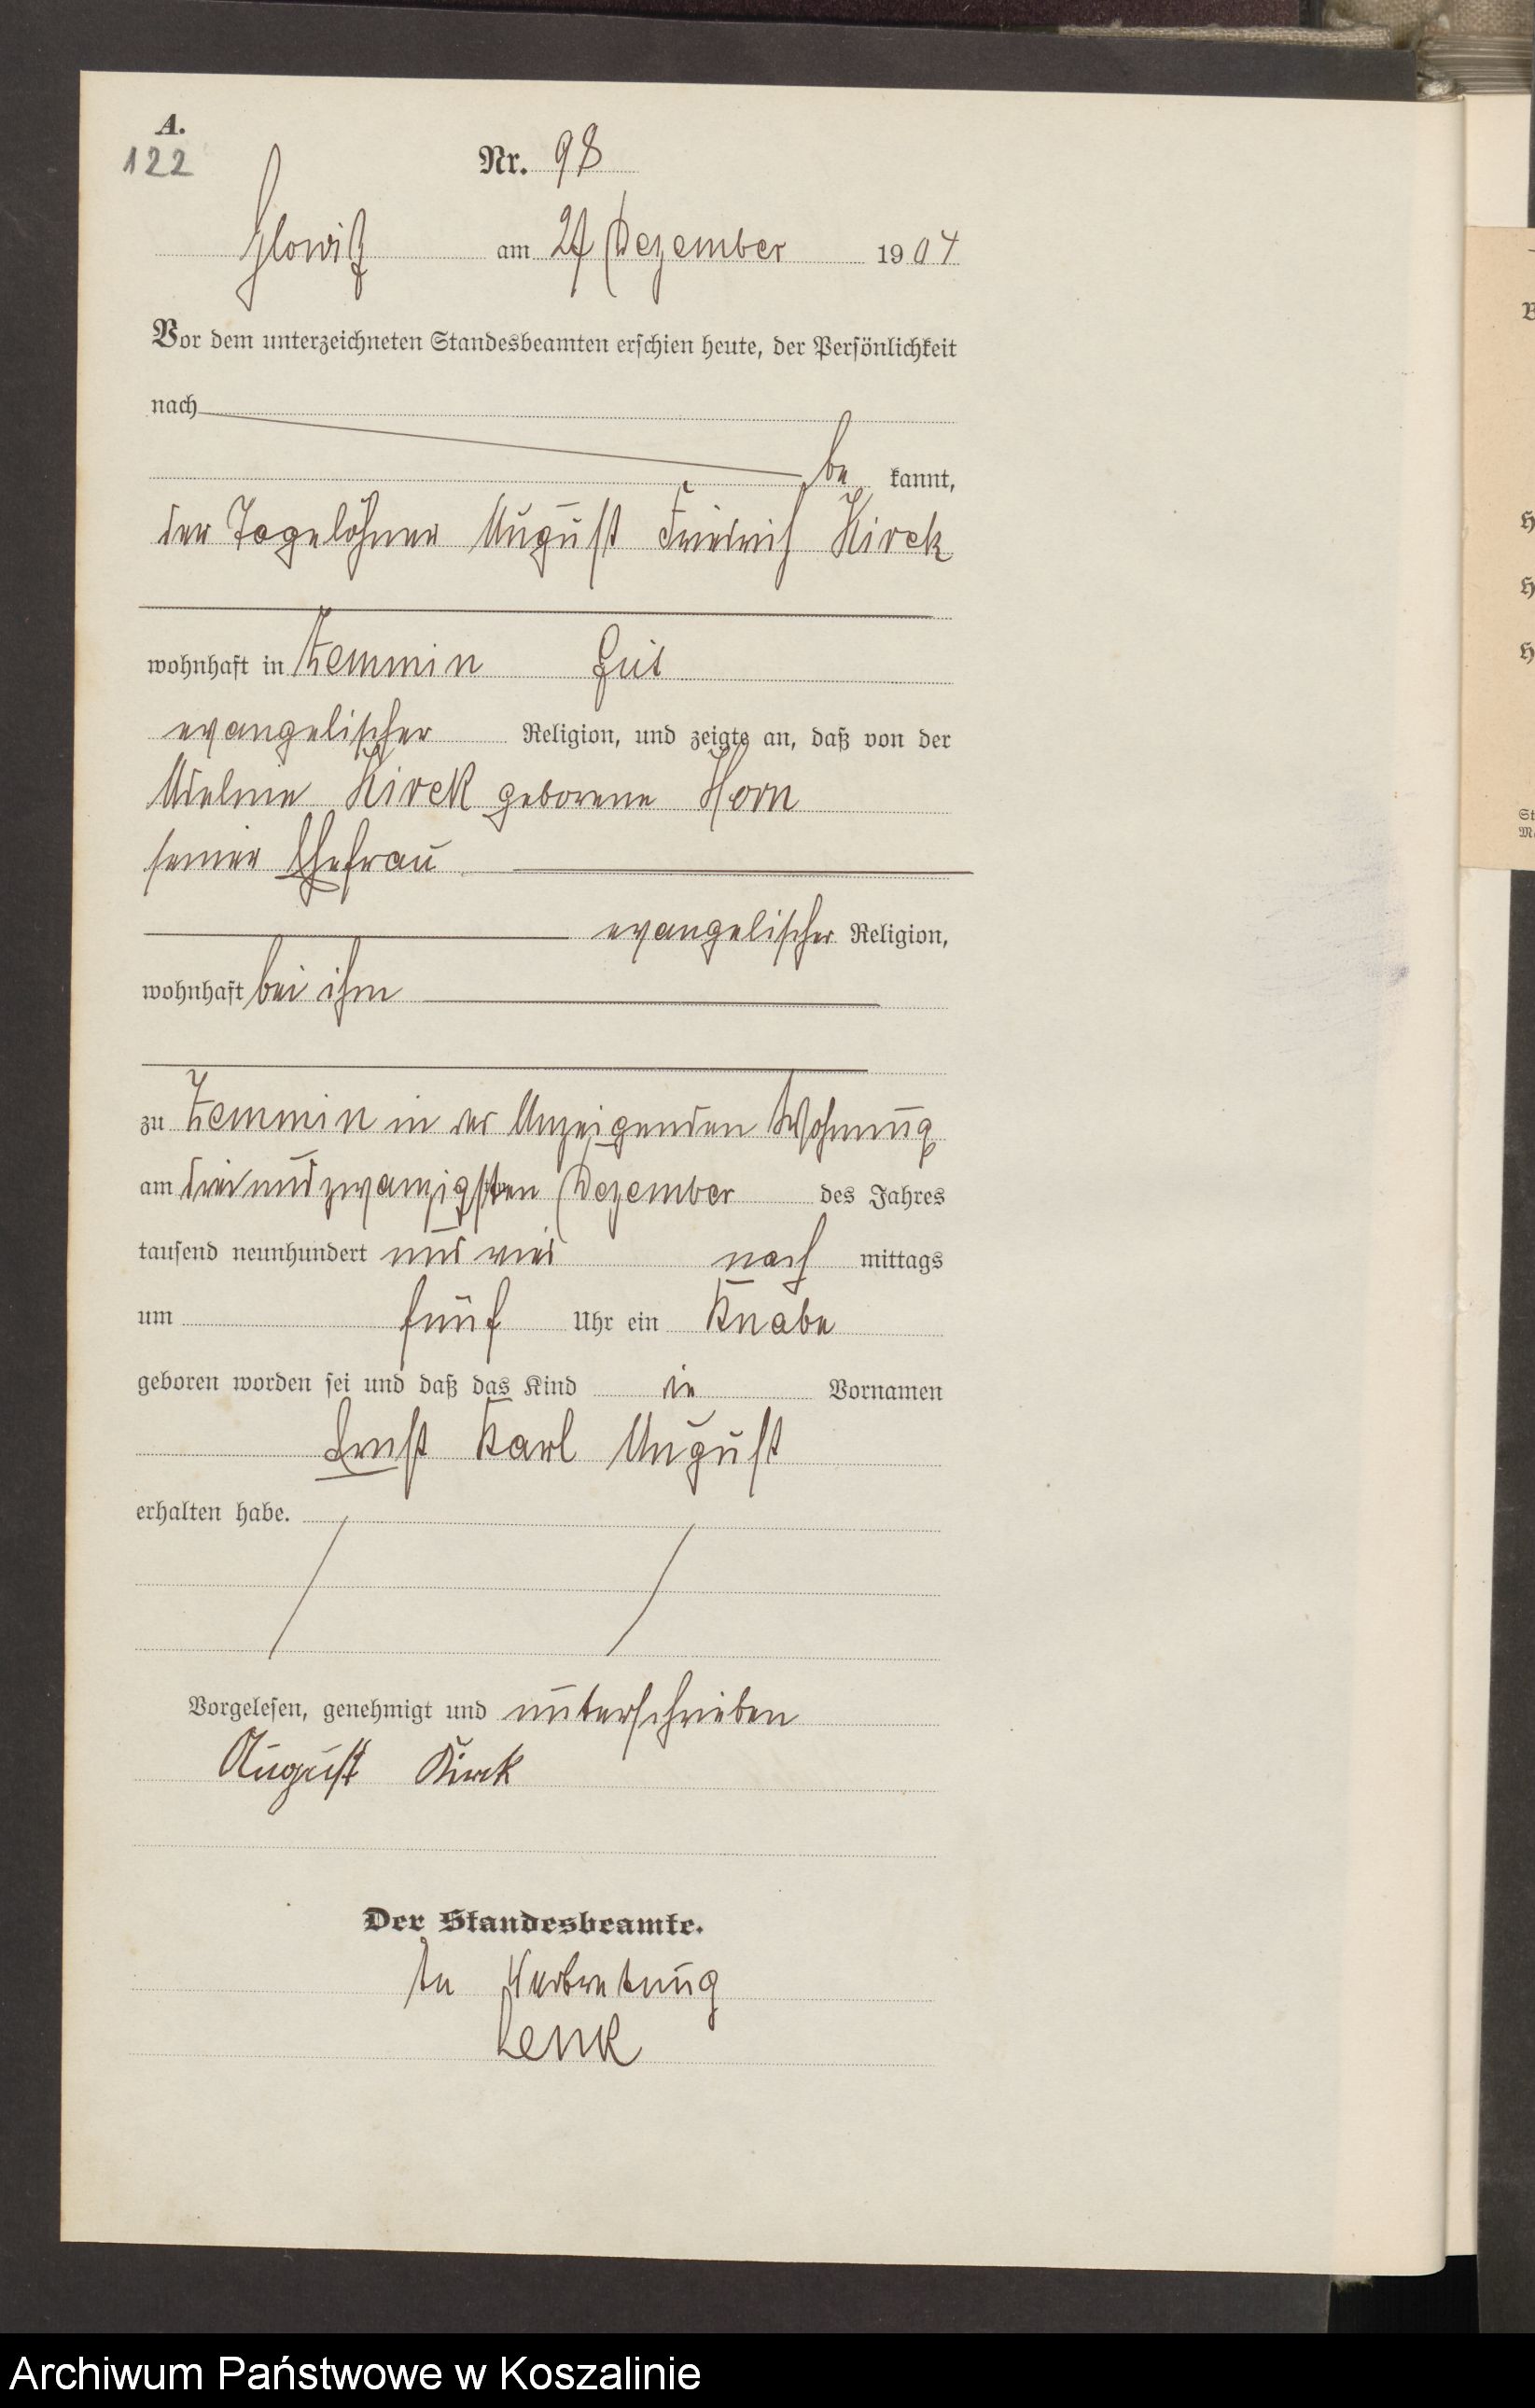 A.
122
Nr. 98
Glowitz am 27 Dezember 1904
Vor dem unterzeichneten Standesbeamten erschien heute, der Persönlichkeit
nach
be kannt,
der Tagelöhner August Friedrich Kirck
wohnhaft in Zemmin Gut
evangelischer Religion, und zeigte an, daß von der
Adeline Kirck geborene Horn
seiner Ehefrau
evangelischer Religion,
wohnhaft bei ihm
zu Zemmin in des Anzeigenden Wohnung
am dreiundzwanzigsten Dezember des Jahres
tausend neunhundert und vier nach mittags
um fünf Uhr ein Knabe
geboren worden sei und daß das Kind die Vornamen
Ernst Karl August
erhalten habe.
Vorgelesen, genehmigt und unterschrieben
August Kirck
Der Standesbeamte.
In Vertretung
Lenk
Archiwum Państwowe w Koszalinie